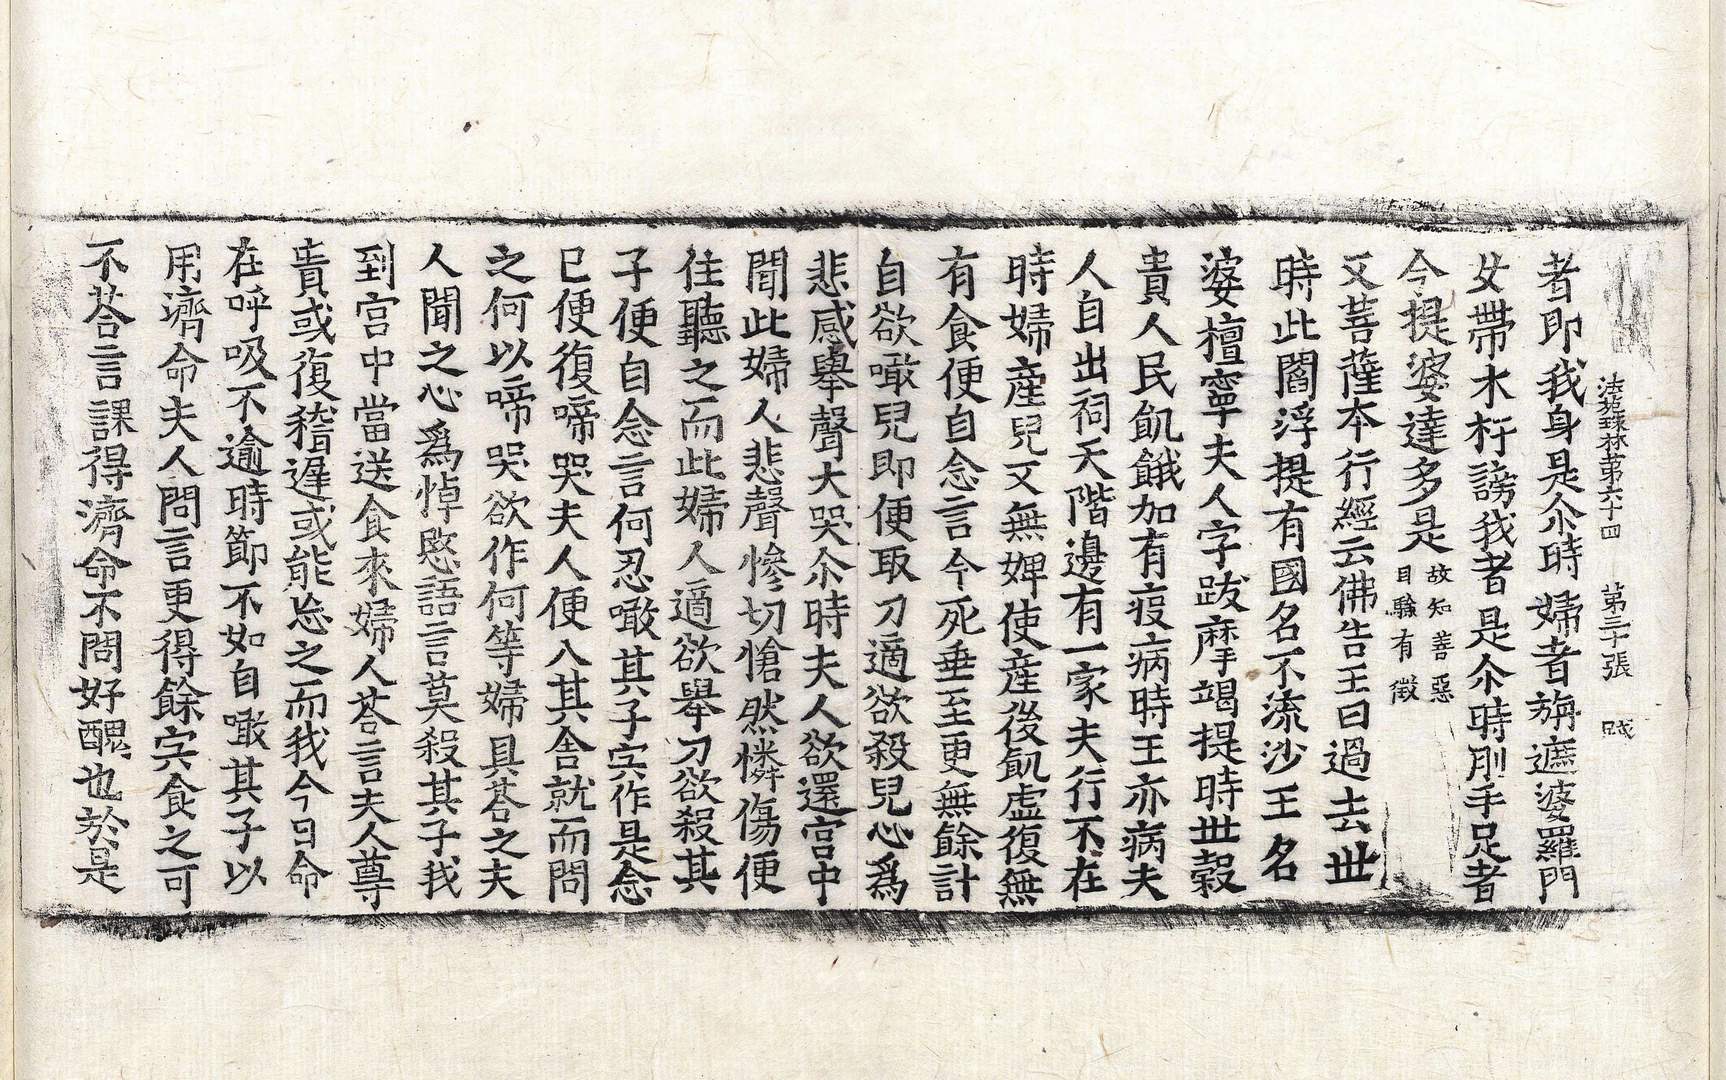 法苑珠林第六十四 第三十張
者即我身是尒時婦者旃遮婆羅門
女帶木杅謗我者是尒時刖手足者
今提婆達多是故知善惡
目驗有徵
又菩薩本行經云佛告王曰過去世
時此閻浮提有國名不流沙王名
婆檀寧夫人字跋摩竭提時世穀
貴人民飢餓加有疫病時王亦病夫
人自出祠天階邊有一家夫行不在
時婦產兒又無婢使產後飢虛復無
有食便自念言今死垂至更無餘計
自欲噉兒即便取刀適欲殺兒心爲
悲感舉聲大哭尒時夫人欲還宮中
聞此婦人悲聲慘切愴然憐傷便
住聽之而此婦人適欲舉刀欲殺其
子便自念言何忍噉其子宍作是念
已便復啼哭夫人便入其舍就而問
之何以啼哭欲作何等婦具荅之夫
人聞之心爲悼愍語言莫殺其子我
到宮中當送食來婦人荅言夫人尊
貴或復稽遲或能忩之而我今日命
在呼吸不逾時節不如自噉其子以
用濟命夫人問言更得餘宍食之可
不荅言課得濟命不問好醜也於是